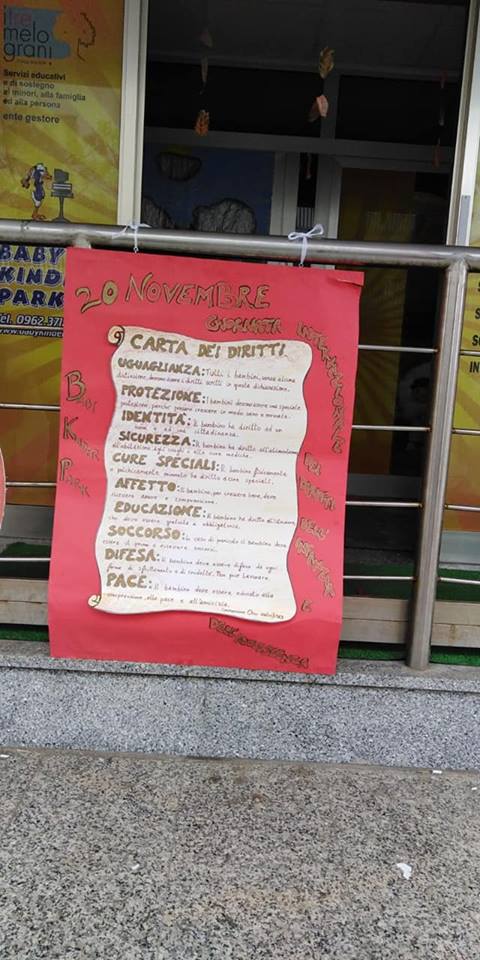 il tre
melo
grani
Servizi educativi
e di sostegno
ai minori, alla famiglia
ed alla persona
ente gestore
BABY
KIND
PARK
Tel. 0962.371
20 NOVEMBRE
GIORNATA INTERNAZIONALE
DEI DIRITTI DELL'INFANZIA E
DELL'ADOLESCENZA
PARK
CARTA DEI DIRITTI
UGUAGLIANZA: Tutti i bambini, senza alcuna
distinzione, devono avere i diritti scritti in questa dichiarazione.
PROTEZIONE: I bambini devono avere una speciale
protezione, perché possano crescere in modo sano e normale.
IDENTITÀ: Il bambino ha diritto ad un
nome e ad una cittadinanza.
SICUREZZA: Il bambino ha diritto all'alimentazione
all'abitazione agli svaghi e alle cure mediche.
CURE SPECIALI: Il bambino fisicamente
o psichicamente minorato ha diritto a cure speciali.
AFFETTO: Il bambino, per crescere bene, deve
ricevere amore e comprensione.
EDUCAZIONE: Il bambino ha diritto all'istruzione
che deve essere gratuita e obbligatoria.
SOCCORSO: In caso di pericolo il bambino deve
essere il primo a ricevere soccorsi.
DIFESA: Il bambino deve essere difeso da ogni
forma di sfruttamento e di crudeltà. Non può lavorare.
PACE: Il bambino deve essere educato alla
comprensione, alla pace e all'amicizia.